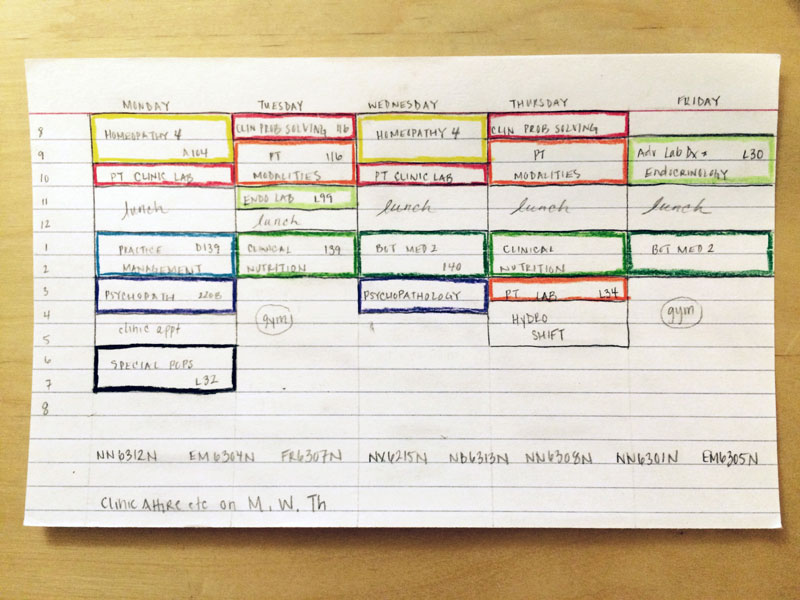 MONDAY TUESDAY WEDNESDAY THURSDAY FRIDAY
8 HOMEOPATHY 4 CLIN PROB SOLVING 116 HOMEOPATHY 4 CLIN PROB SOLVING
9 A104 PT 116 PT Adv Lab Dx → L30
10 PT CLINIC LAB MODALITIES PT CLINIC LAB MODALITIES ENDOCRINOLOGY
11 lunch ENDO LAB L99 lunch lunch lunch
12 lunch
1 PRACTICE D139 CLINICAL 139 BOT MED 2 CLINICAL BOT MED 2
2 MANAGEMENT NUTRITION 140 NUTRITION
3 PSYCHOPATH 220B PSYCHOPATHOLOGY PT LAB L34
4 clinic appt gym HYDRO gym
5 SHIFT
6 SPECIAL POPS
7 L32
8
NN6312N EM6304N FR6307N NX6215N ND6313N NN6308N NN6301N EM6305N
Clinic Attire etc on M, W, Th